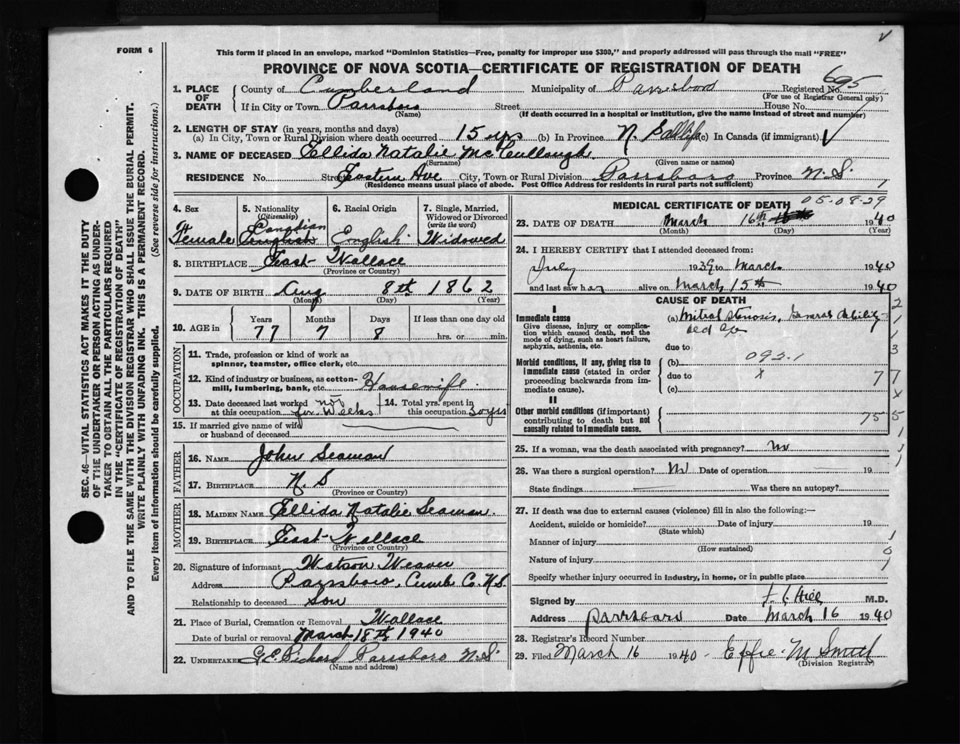 FORM 6
This form if placed in an envelope, marked "Dominion Statistics—Free, penalty for improper use $300," and properly addressed will pass through the mail "FREE"
PROVINCE OF NOVA SCOTIA—CERTIFICATE OF REGISTRATION OF DEATH
SEC. 46—VITAL STATISTICS ACT MAKES IT THE DUTY
OF THE UNDERTAKER OR PERSON ACTING AS UNDER-
TAKER TO OBTAIN ALL THE PARTICULARS REQUIRED
IN THE "CERTIFICATE OF REGISTRATION OF DEATH"
AND TO FILE THE SAME WITH THE DIVISION REGISTRAR WHO SHALL ISSUE THE BURIAL PERMIT.
WRITE PLAINLY WITH UNFADING INK. THIS IS A PERMANENT RECORD.
Every item of information should be carefully supplied. (See reverse side for instructions.)
1. PLACE OF DEATH
County of Cumberland Municipality of Parrsboro Registered No. 695
(For use of Registrar General only)
If in City or Town Parrsboro Street House No.
(Name) (If death occurred in a hospital or institution, give the name instead of street and number)
2. LENGTH OF STAY (in years, months and days)
(a) In City, Town or Rural Division where death occurred 15 yrs (b) In Province N.S. all life (c) In Canada (if immigrant)
3. NAME OF DECEASED Ellida Natalie McCullough
(Surname) (Given name or names)
RESIDENCE No. Street Eastern Ave City, Town or Rural Division Parrsboro Province N.S.
(Residence means usual place of abode. Post Office Address for residents in rural parts not sufficient)
4. Sex Female
5. Nationality (Citizenship) Canadian English
6. Racial Origin English
7. Single, Married, Widowed or Divorced (write the word) Widowed
8. BIRTHPLACE East Wallace
(Province or Country)
9. DATE OF BIRTH Aug 8th 1862
(Month) (Day) (Year)
10. AGE in Years Months Days If less than one day old
77 7 8 hrs. or min.
OCCUPATION
11. Trade, profession or kind of work as
spinner, teamster, office clerk, etc.
12. Kind of industry or business, as cotton-
mill, lumbering, bank, etc. Housewife
13. Date deceased last worked at this occupation not for weeks
14. Total yrs. spent in this occupation 50 yrs
15. If married give name of wife
or husband of deceased
FATHER
16. NAME John Seaman
17. BIRTHPLACE N.S
(Province or Country)
MOTHER
18. MAIDEN NAME Ellida Natalie Seaman
19. BIRTHPLACE East Wallace
(Province or Country)
20. Signature of informant Watson Weaver
Address Parrsboro, Cumb. Co. N.S.
Relationship to deceased Son
21. Place of Burial, Cremation or Removal Wallace
Date of burial or removal March 18th 1940
22. UNDERTAKER G.E. Pichard Parrsboro N.S.
(Name and address)
MEDICAL CERTIFICATE OF DEATH 05-08-29
23. DATE OF DEATH March 16th 1940
(Month) (Day) (Year)
24. I HEREBY CERTIFY that I attended deceased from:
July 1939 to March 1940
and last saw her alive on March 15th 1940
CAUSE OF DEATH
I
Immediate cause
Give disease, injury or complica-
tion which caused death, not the
mode of dying, such as heart failure,
asphyxia, asthenia, etc.
(a) Mitral stenosis, General debility
old age
due to
Morbid conditions, if any, giving rise to
Immediate cause (stated in order
proceeding backwards from im-
mediate cause).
(b) 092.1
due to x
(c)
II
Other morbid conditions (if important)
contributing to death but not
causally related to immediate cause.
25. If a woman, was the death associated with pregnancy? No
26. Was there a surgical operation? No Date of operation 19
State findings Was there an autopsy?
27. If death was due to external causes (violence) fill in also the following:—
Accident, suicide or homicide? Date of injury 19
(State which)
Manner of injury
(How sustained)
Nature of injury
Specify whether injury occurred in industry, in home, or in public place
Signed by Hill M.D.
Address Parrsboro Date March 16 1940
28. Registrar's Record Number
29. Filed March 16 1940 Effie M Smith
(Division Registrar)